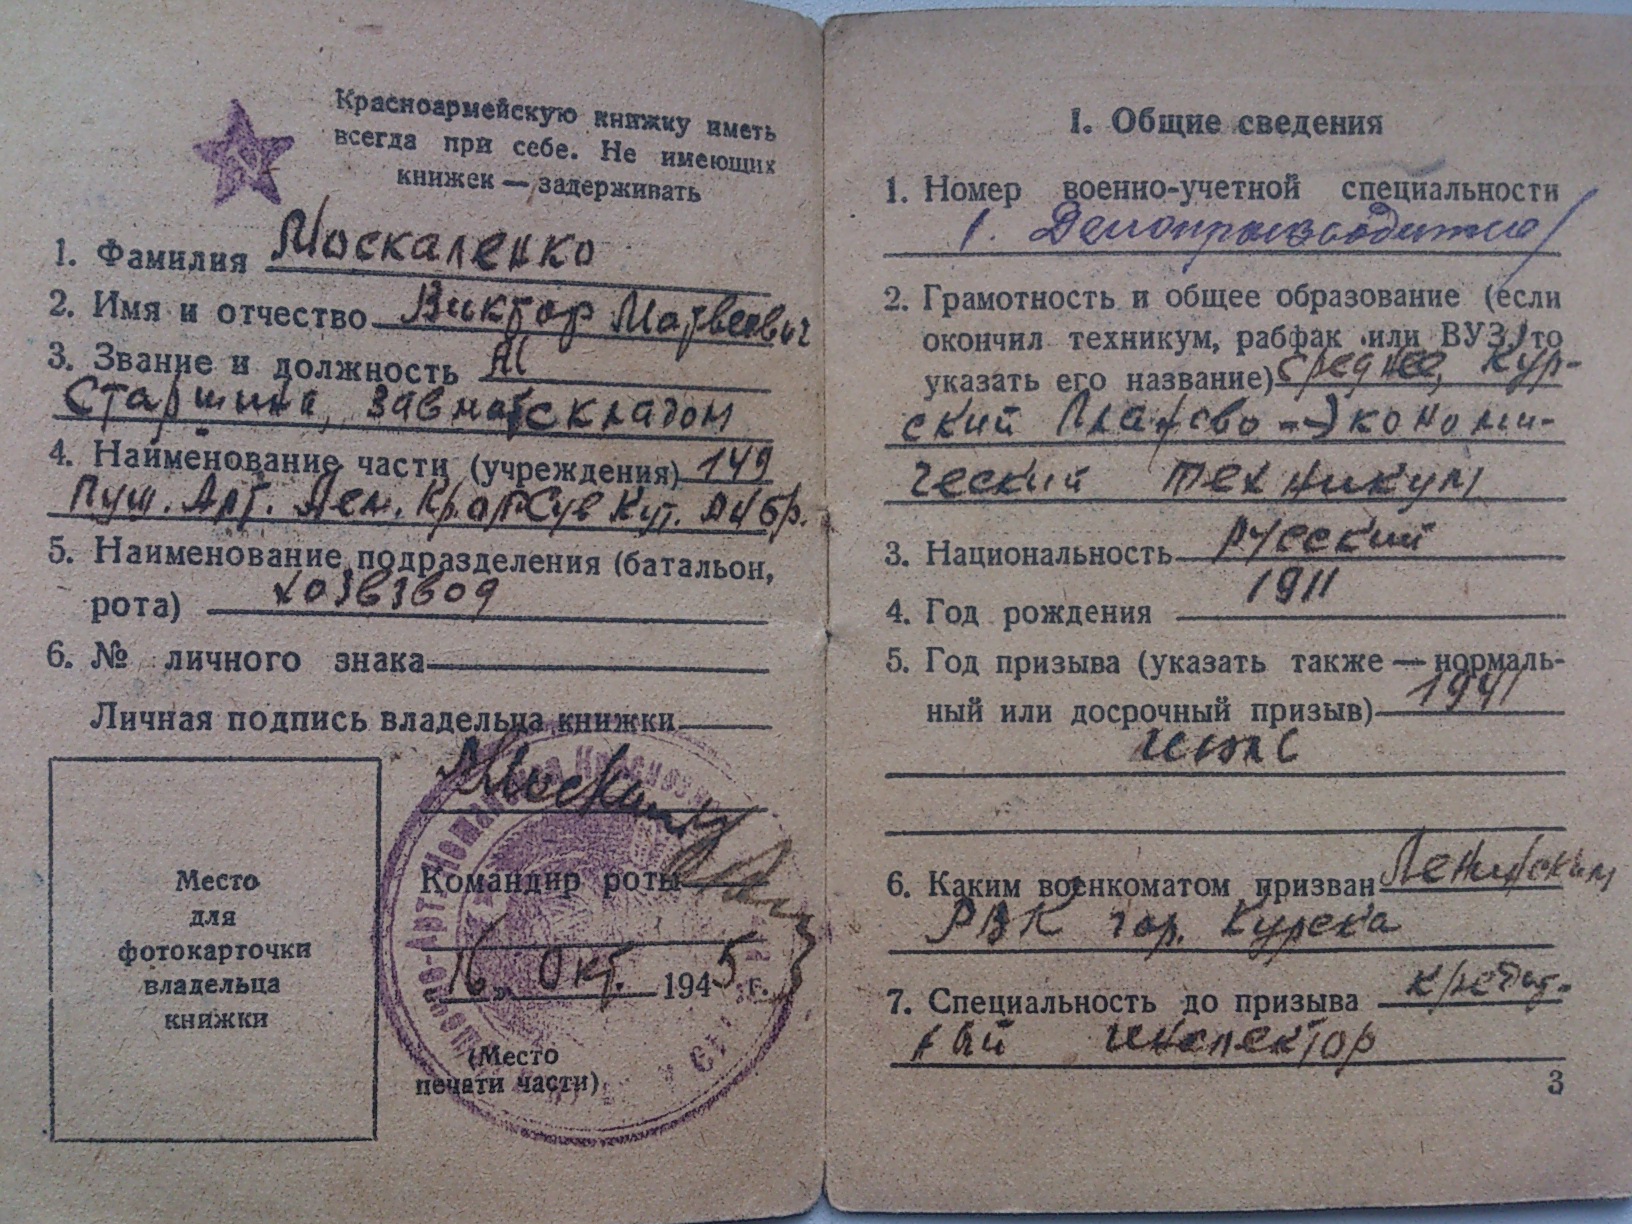 Красноармейскую книжку иметь
всегда при себе. Не имеющих
книжек — задерживать
1. Фамилия Москаленко
2. Имя и отчество Виктор Матвеевич
3. Звание и должность
Старшина, завматскладом
4. Наименование части (учреждения) 149
Пуш. Арт. Лен. Кр. орд. Сув Кут. Ад бр.
5. Наименование подразделения (батальон,
рота) хозвзвод
6. № личного знака
Личная подпись владельца книжки
Командир роты
16 „ Окт. 1945 г.
(Место
печати части)
Место
для
фотокарточки
владельца
книжки
I. Общие сведения
1. Номер военно-учетной специальности
1. Делопроизводитель
2. Грамотность и общее образование (если
окончил техникум, рабфак или ВУЗ, то
указать его название) среднее, Кур-
ский Планово-Экономи-
ческий техникум
3. Национальность русский
4. Год рождения 1911
5. Год призыва (указать также — нормаль-
ный или досрочный призыв) 1941
июль
6. Каким военкоматом призван Ленинским
РВК гор. Курска
7. Специальность до призыва кредит-
ный инспектор
3